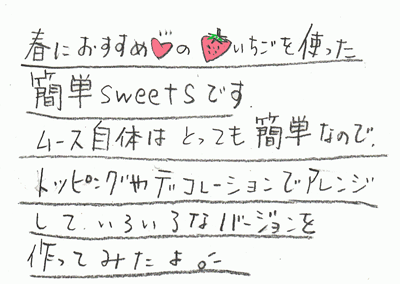 春におすすめ♥の🍓いちごを使った
簡単sweetsです
ムース自体はとっても簡単なので、
トッピングやデコレーションでアレンジ
して、いろいろなバージョンを
作ってみたよ。